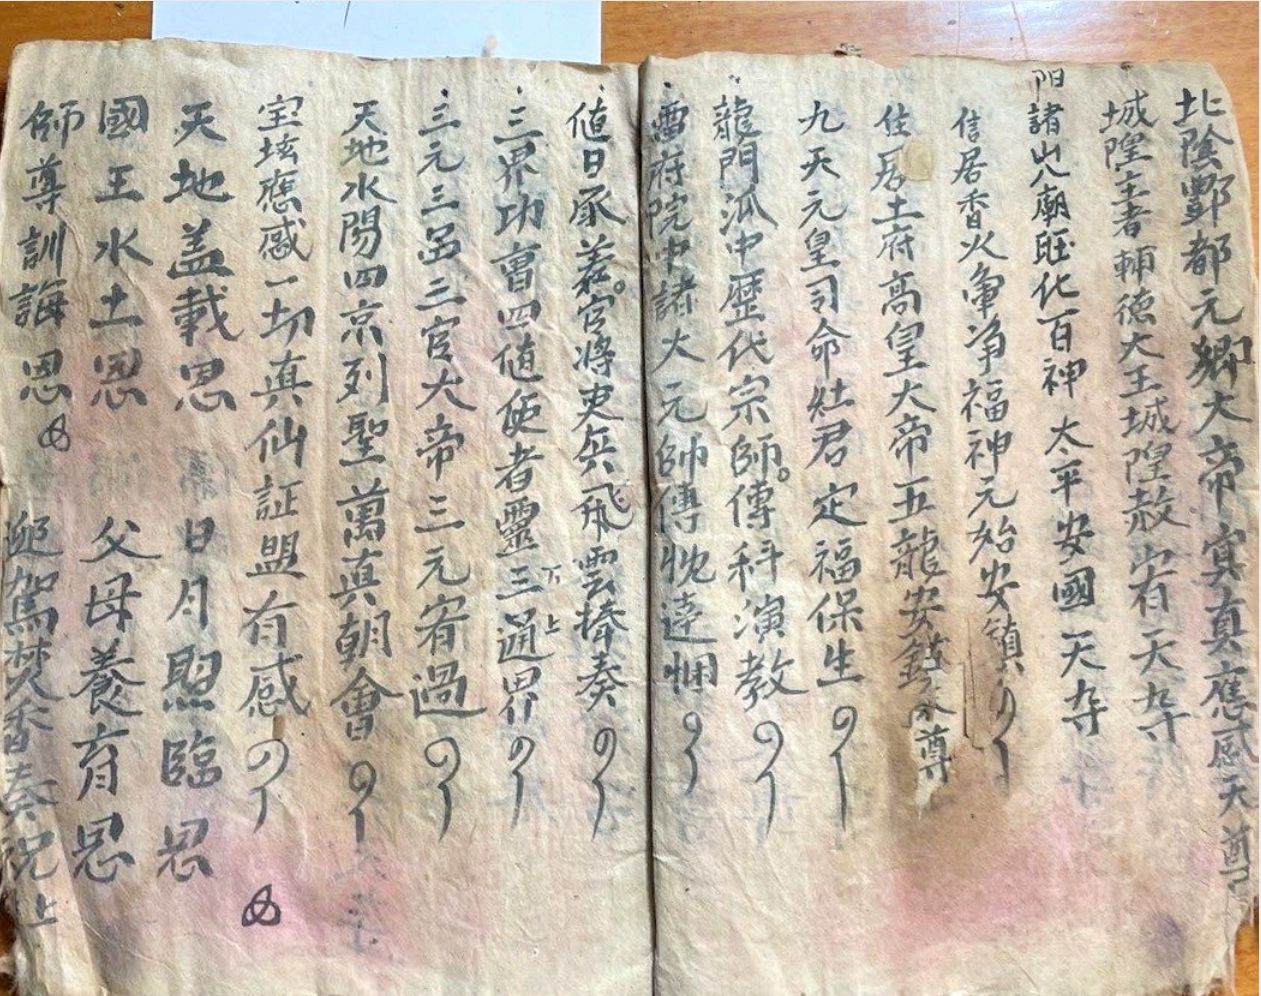 北陰酆都元卿大帝冥真應感天尊
城隍主者輔德大王城隍赦宥天尊
阳諸山八廟旺化百神太平安國天尊
信居香火羣净福神元始安鎮
住居土府高皇大帝五龍安鎮天尊
九天元皇司命灶君定福保生
龍門派中歷代宗師傳科演教
雷府院中諸大元帥傅忱達悃
值日承差官將吏兵飛雲捧奏
三界功曹四值使者靈三通界下上
三元三品三官大帝三元宥過
天地水陽四京列聖萬真朝會
宝坛應感一切真仙証盟有感
天地盖載恩 日月照臨恩
國王水土恩 父母養育恩
師尊訓誨恩 迎駕焚香奏祝上